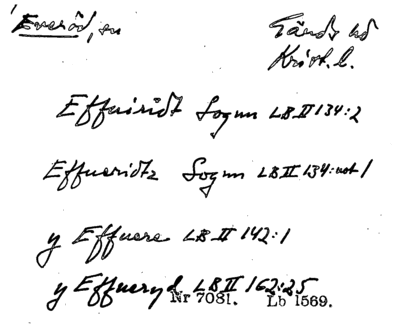 Everöd, sn
Gärds hd
Krist. l.
Effuiridt Sognn LB II 134:2
Effueridtz Sognn LB II 134: not 1
y Effuere LB II 142:1
y Effueryd LB II 162:25
Nr 7081. Lb 1569.